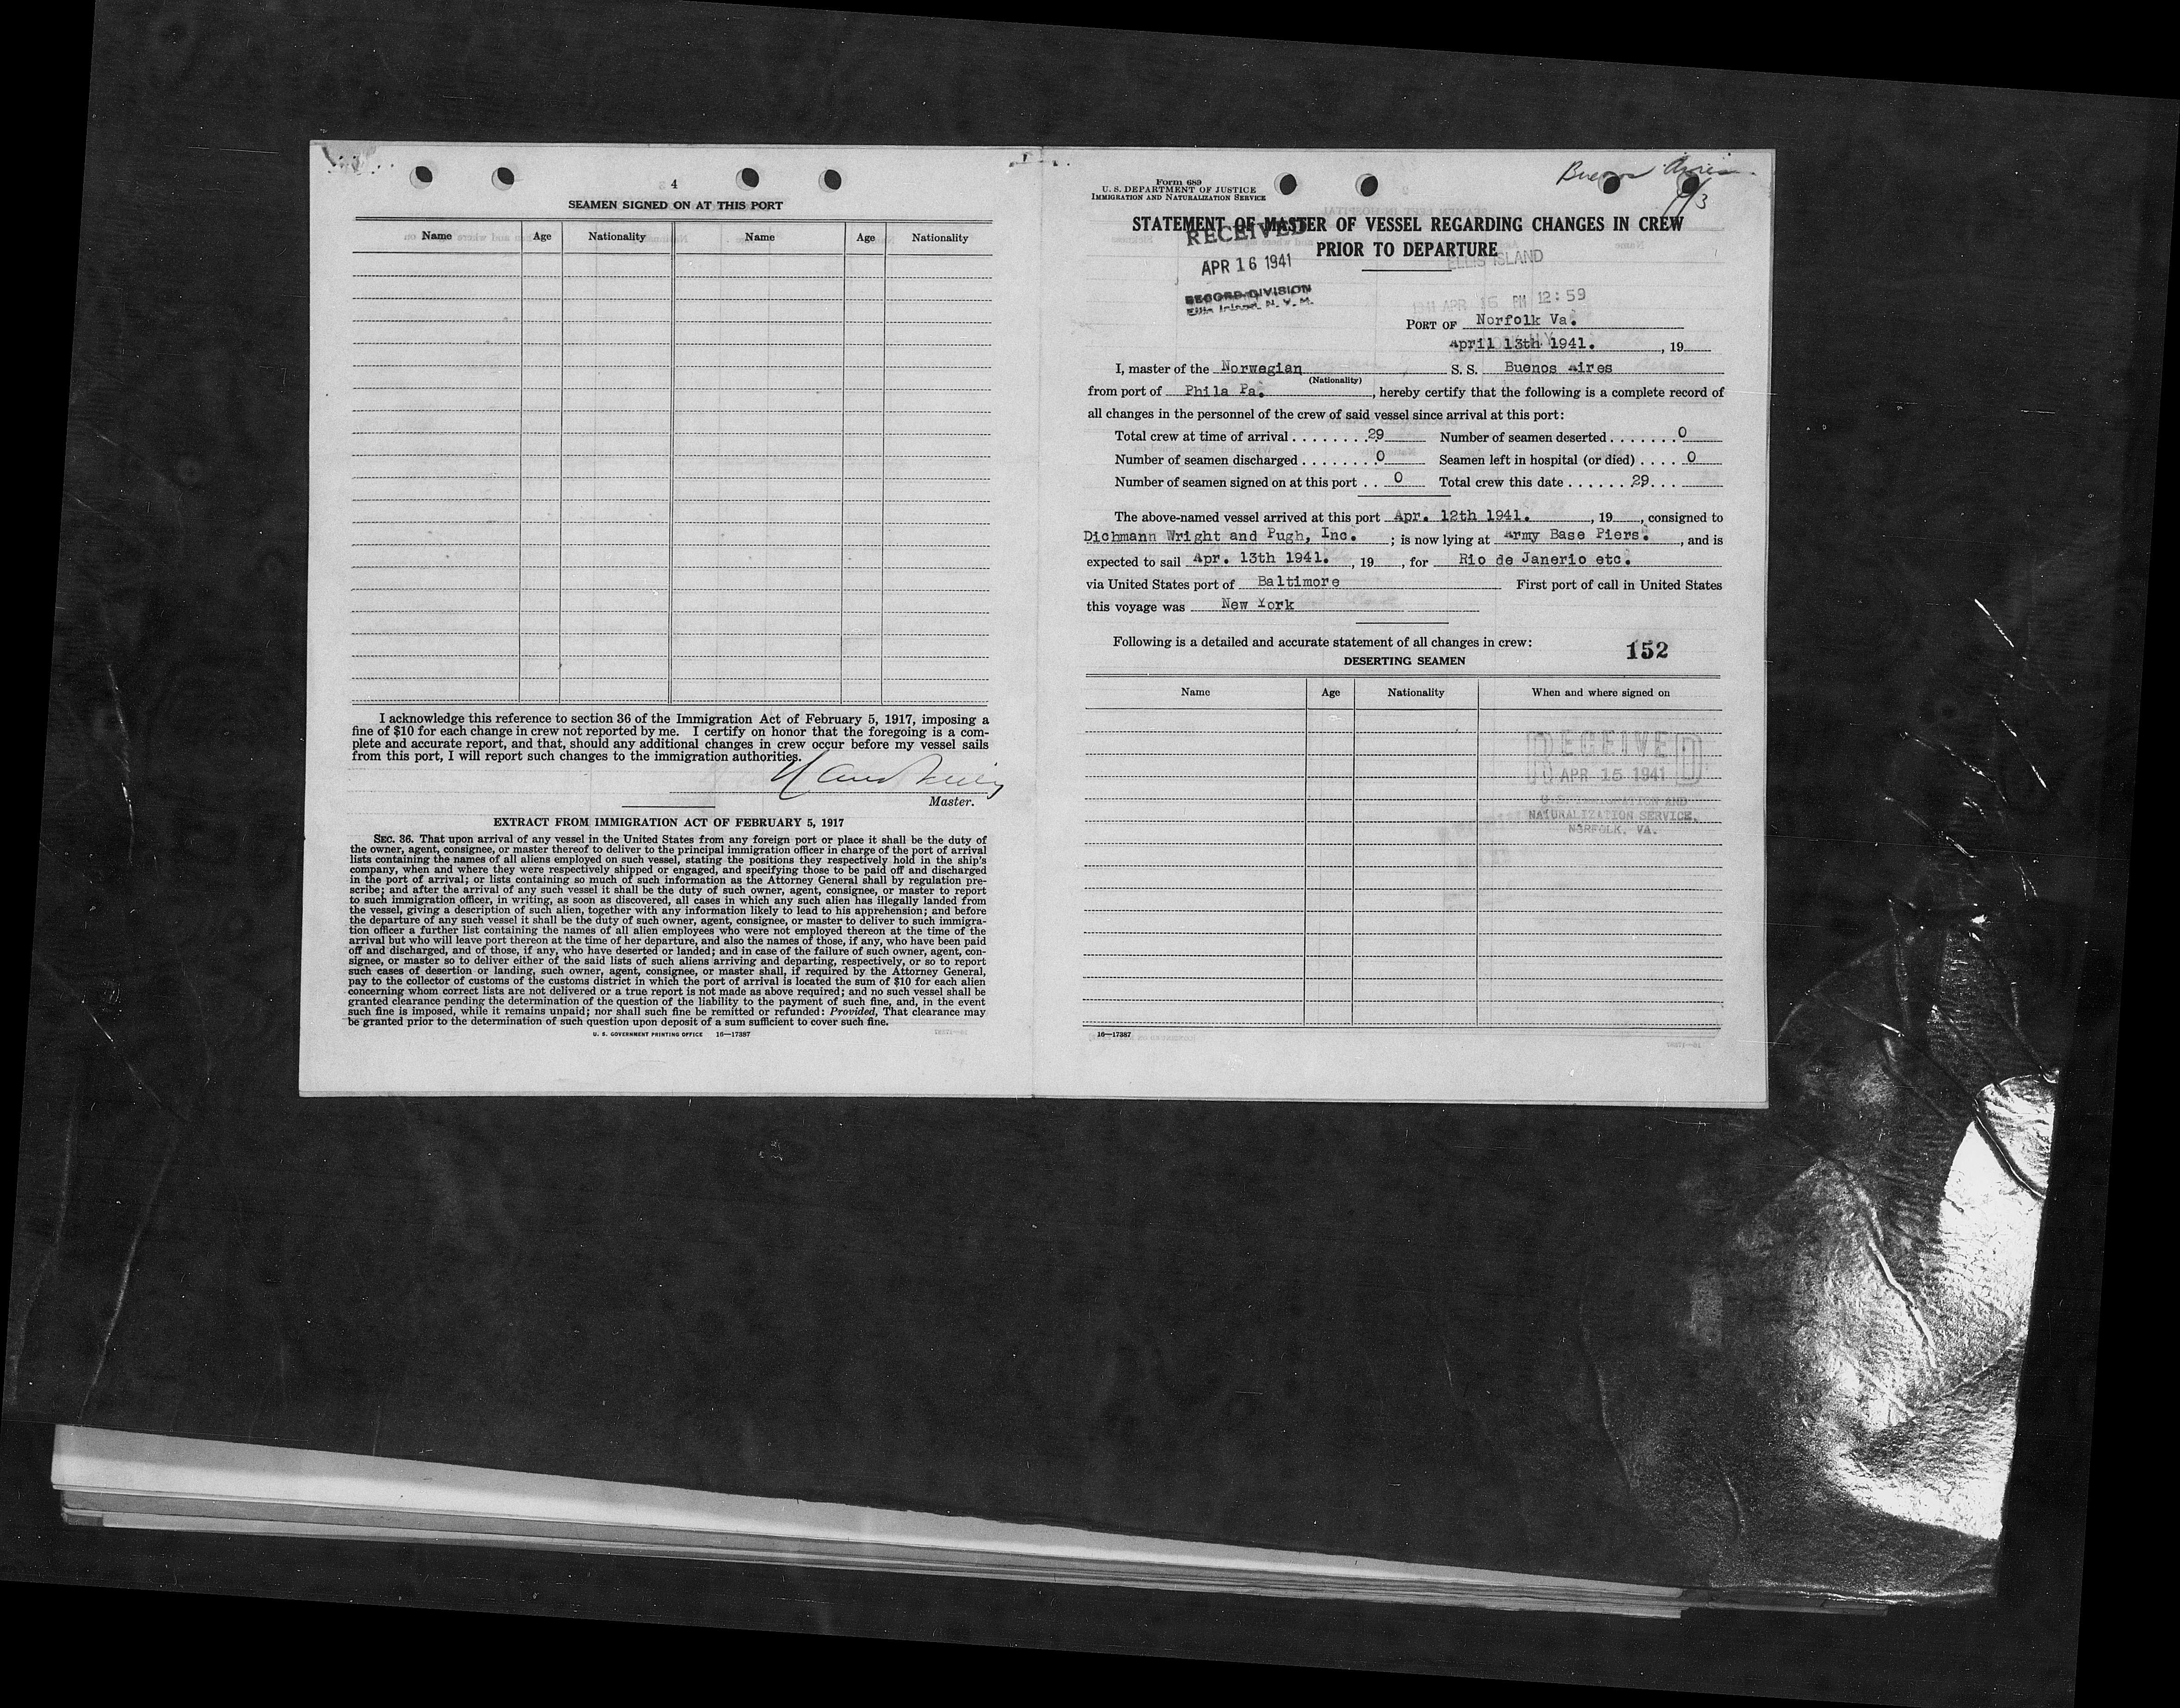 4
SEAMEN SIGNED ON AT THIS PORT
Name Age Nationality Name Age Nationality
I acknowledge this reference to section 36 of the Immigration Act of February 5, 1917, imposing a
fine of $10 for each change in crew not reported by me. I certify on honor that the foregoing is a com-
plete and accurate report, and that, should any additional changes in crew occur before my vessel sails
from this port, I will report such changes to the immigration authorities.
Master.
EXTRACT FROM IMMIGRATION ACT OF FEBRUARY 5, 1917
SEC. 36. That upon arrival of any vessel in the United States from any foreign port or place it shall be the duty of
the owner, agent, consignee, or master thereof to deliver to the principal immigration officer in charge of the port of arrival
lists containing the names of all aliens employed on such vessel, stating the positions they respectively hold in the ship's
company, when and where they were respectively shipped or engaged, and specifying those to be paid off and discharged
in the port of arrival; or lists containing so much of such information as the Attorney General shall by regulation pre-
scribe; and after the arrival of any such vessel it shall be the duty of such owner, agent, consignee, or master to report
to such immigration officer, in writing, as soon as discovered, all cases in which any such alien has illegally landed from
the vessel, giving a description of such alien, together with any information likely to lead to his apprehension; and before
the departure of any such vessel it shall be the duty of such owner, agent, consignee, or master to deliver to such immigra-
tion officer a further list containing the names of all alien employees who were not employed thereon at the time of the
arrival but who will leave port thereon at the time of her departure, and also the names of those, if any, who have been paid
off and discharged, and of those, if any, who have deserted or landed; and in case of the failure of such owner, agent, con-
signee, or master so to deliver either of the said lists of such aliens arriving and departing, respectively, or so to report
such cases of desertion or landing, such owner, agent, consignee, or master shall, if required by the Attorney General,
pay to the collector of customs of the customs district in which the port of arrival is located the sum of $10 for each alien
concerning whom correct lists are not delivered or a true report is not made as above required; and no such vessel shall be
granted clearance pending the determination of the question of the liability to the payment of such fine, and, in the event
such fine is imposed, while it remains unpaid; nor shall such fine be remitted or refunded: Provided, That clearance may
be granted prior to the determination of such question upon deposit of a sum sufficient to cover such fine.
U. S. GOVERNMENT PRINTING OFFICE 16—17387
Buenos Aires
Form 689
U. S. DEPARTMENT OF JUSTICE
IMMIGRATION AND NATURALIZATION SERVICE
STATEMENT OF MASTER OF VESSEL REGARDING CHANGES IN CREW
PRIOR TO DEPARTURE
RECEIVED
APR 16 1941
RECORD DIVISION
Ellis Island, N. Y. H.
ELLIS ISLAND
1941 APR 16 PM 12:59
PORT OF Norfolk Va.
April 13th 1941. , 19
I, master of the Norwegian S. S. Buenos Aires
(Nationality)
from port of Phila Pa. , hereby certify that the following is a complete record of
all changes in the personnel of the crew of said vessel since arrival at this port:
Total crew at time of arrival . . . . . . . . 29 Number of seamen deserted . . . . . . . 0
Number of seamen discharged . . . . . . . . 0 Seamen left in hospital (or died) . . . . 0
Number of seamen signed on at this port . . 0 Total crew this date . . . . . . 29. . .
The above-named vessel arrived at this port Apr. 12th 1941. , 19 , consigned to
Dichmann Wright and Pugh, Inc. ; is now lying at Army Base Piers. , and is
expected to sail Apr. 13th 1941. , 19 , for Rio de Janerio etc.
via United States port of Baltimore First port of call in United States
this voyage was New York
Following is a detailed and accurate statement of all changes in crew:
152
DESERTING SEAMEN
Name Age Nationality When and where signed on
RECEIVED
APR 15 1941
U. S. IMMIGRATION AND
NATURALIZATION SERVICE,
NORFOLK, VA.
16—17387